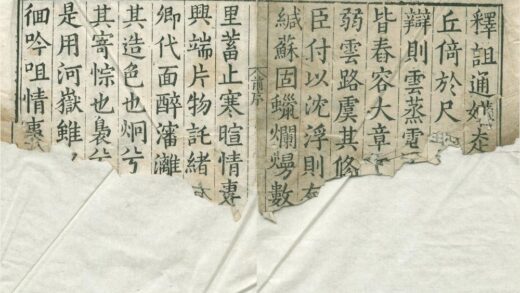 釋詛通
丘倚於尺
辯則雲蒸電
皆舂容大章
弱雲路虞其脩
臣付以沈浮則
緘蘇固蠟爛熳數
前序
里蓄止寒暄情
興端片物託緒
卿代面醉瀋灕
其造色也炯兮
其寄悰也裊兮
是用河嶽雖
徊吟咀情